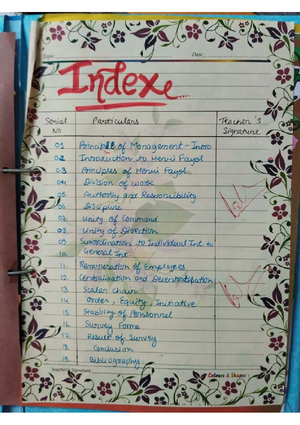 Topic
Date
Indexe....
Serial No. Particulars Teacher's Signature
01 Principle of Management - Intro
02 Introduction to Henri Fayol
03 Principles of Henri Fayol
04 Division of work
05 Authority and Responsibility
06 Discipline
07 Unity of Command
08 Unity of Direction
09 Subordination to Individual Int. to
10. General Int.
11. Remuneration of Employees
12. Centralisation and Decentralisation
13 Scalar chain
14 Order, Equity, Initiative
15. Stability of Personnel
16 Survey Forms
17. Result of Survey
18. Conclusion
19. Bibliography
Teacher's Signature
Colours & Shapes